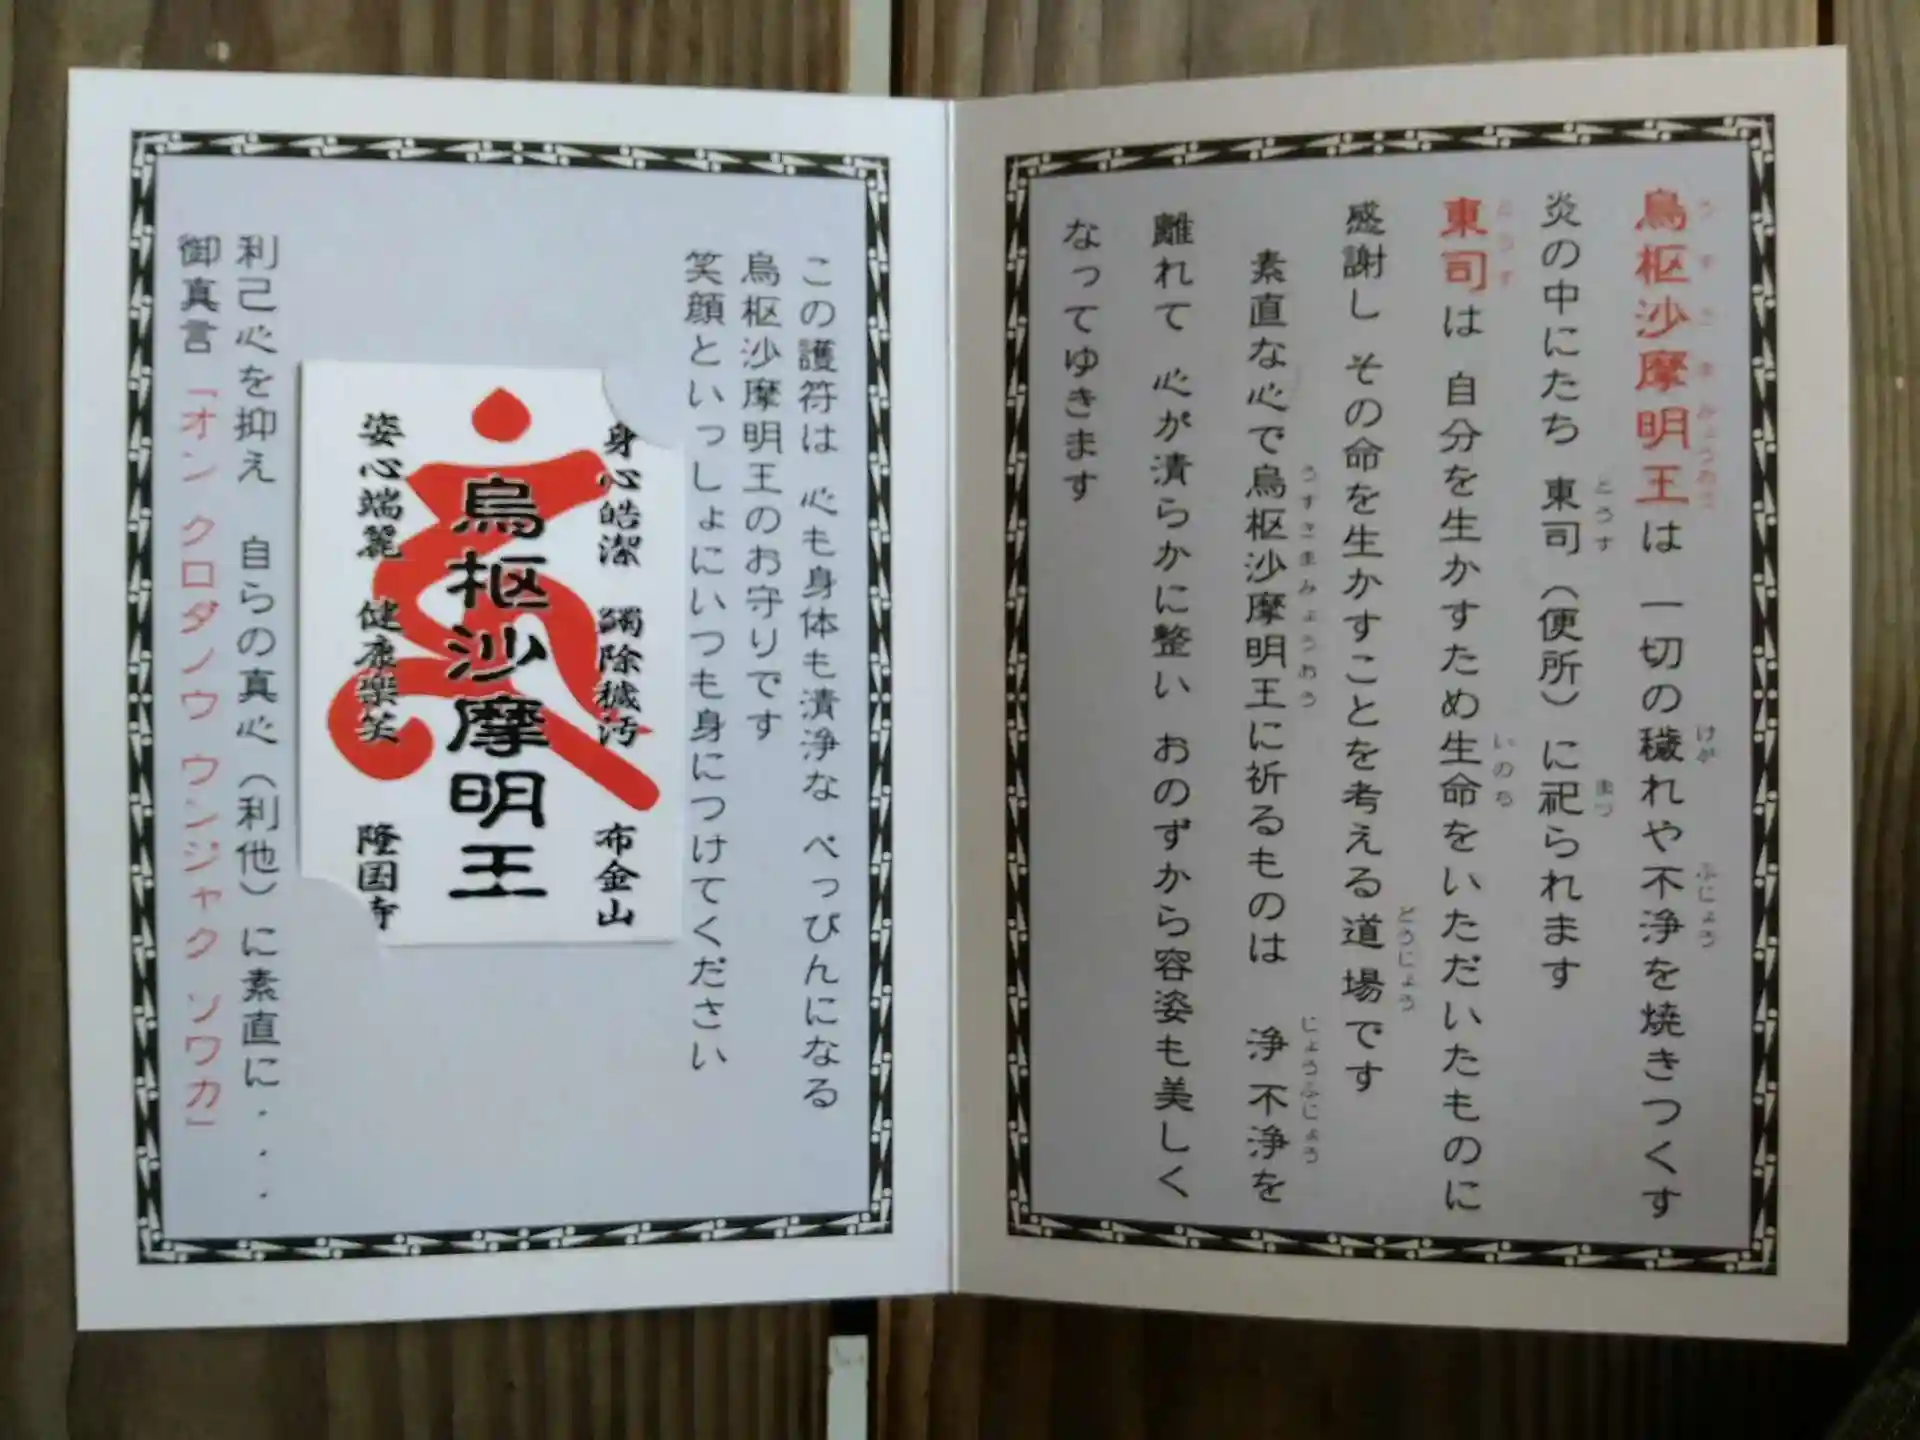 烏枢沙摩明王は 一切の穢れや不浄を焼きつくす
うすさまみょうおう
けが
ふじょう
炎の中にたち 東司（便所）に祀られます
とうす
まつ
東司は 自分を生かすため生命をいただいたものに
とうす
いのち
感謝し その命を生かすことを考える道場です
どうじょう
素直な心で烏枢沙摩明王に祈るものは 浄不浄を
うすさまみょうおう
じょうふじょう
離れて 心が清らかに整い おのずから容姿も美しく
なってゆきます
この護符は 心も身体も清浄な べっぴんになる
烏枢沙摩明王のお守りです
笑顔といっしょにいつも身につけてください
身心皓潔 蠲除穢汚 布金山
烏枢沙摩明王
姿心端麗 健康楽笑 隆国寺
利己心を抑え 自らの真心（利他）に素直に・・・・
御真言「オン クロダノウ ウンジャク ソワカ」